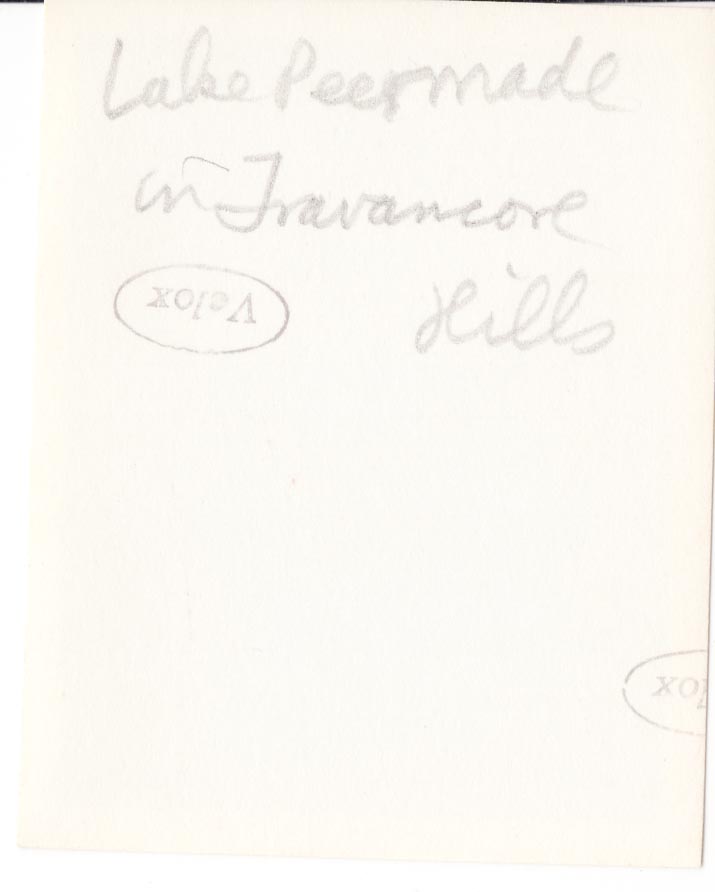 Lake Peermade
in Travancore
Hills
Velox
lox